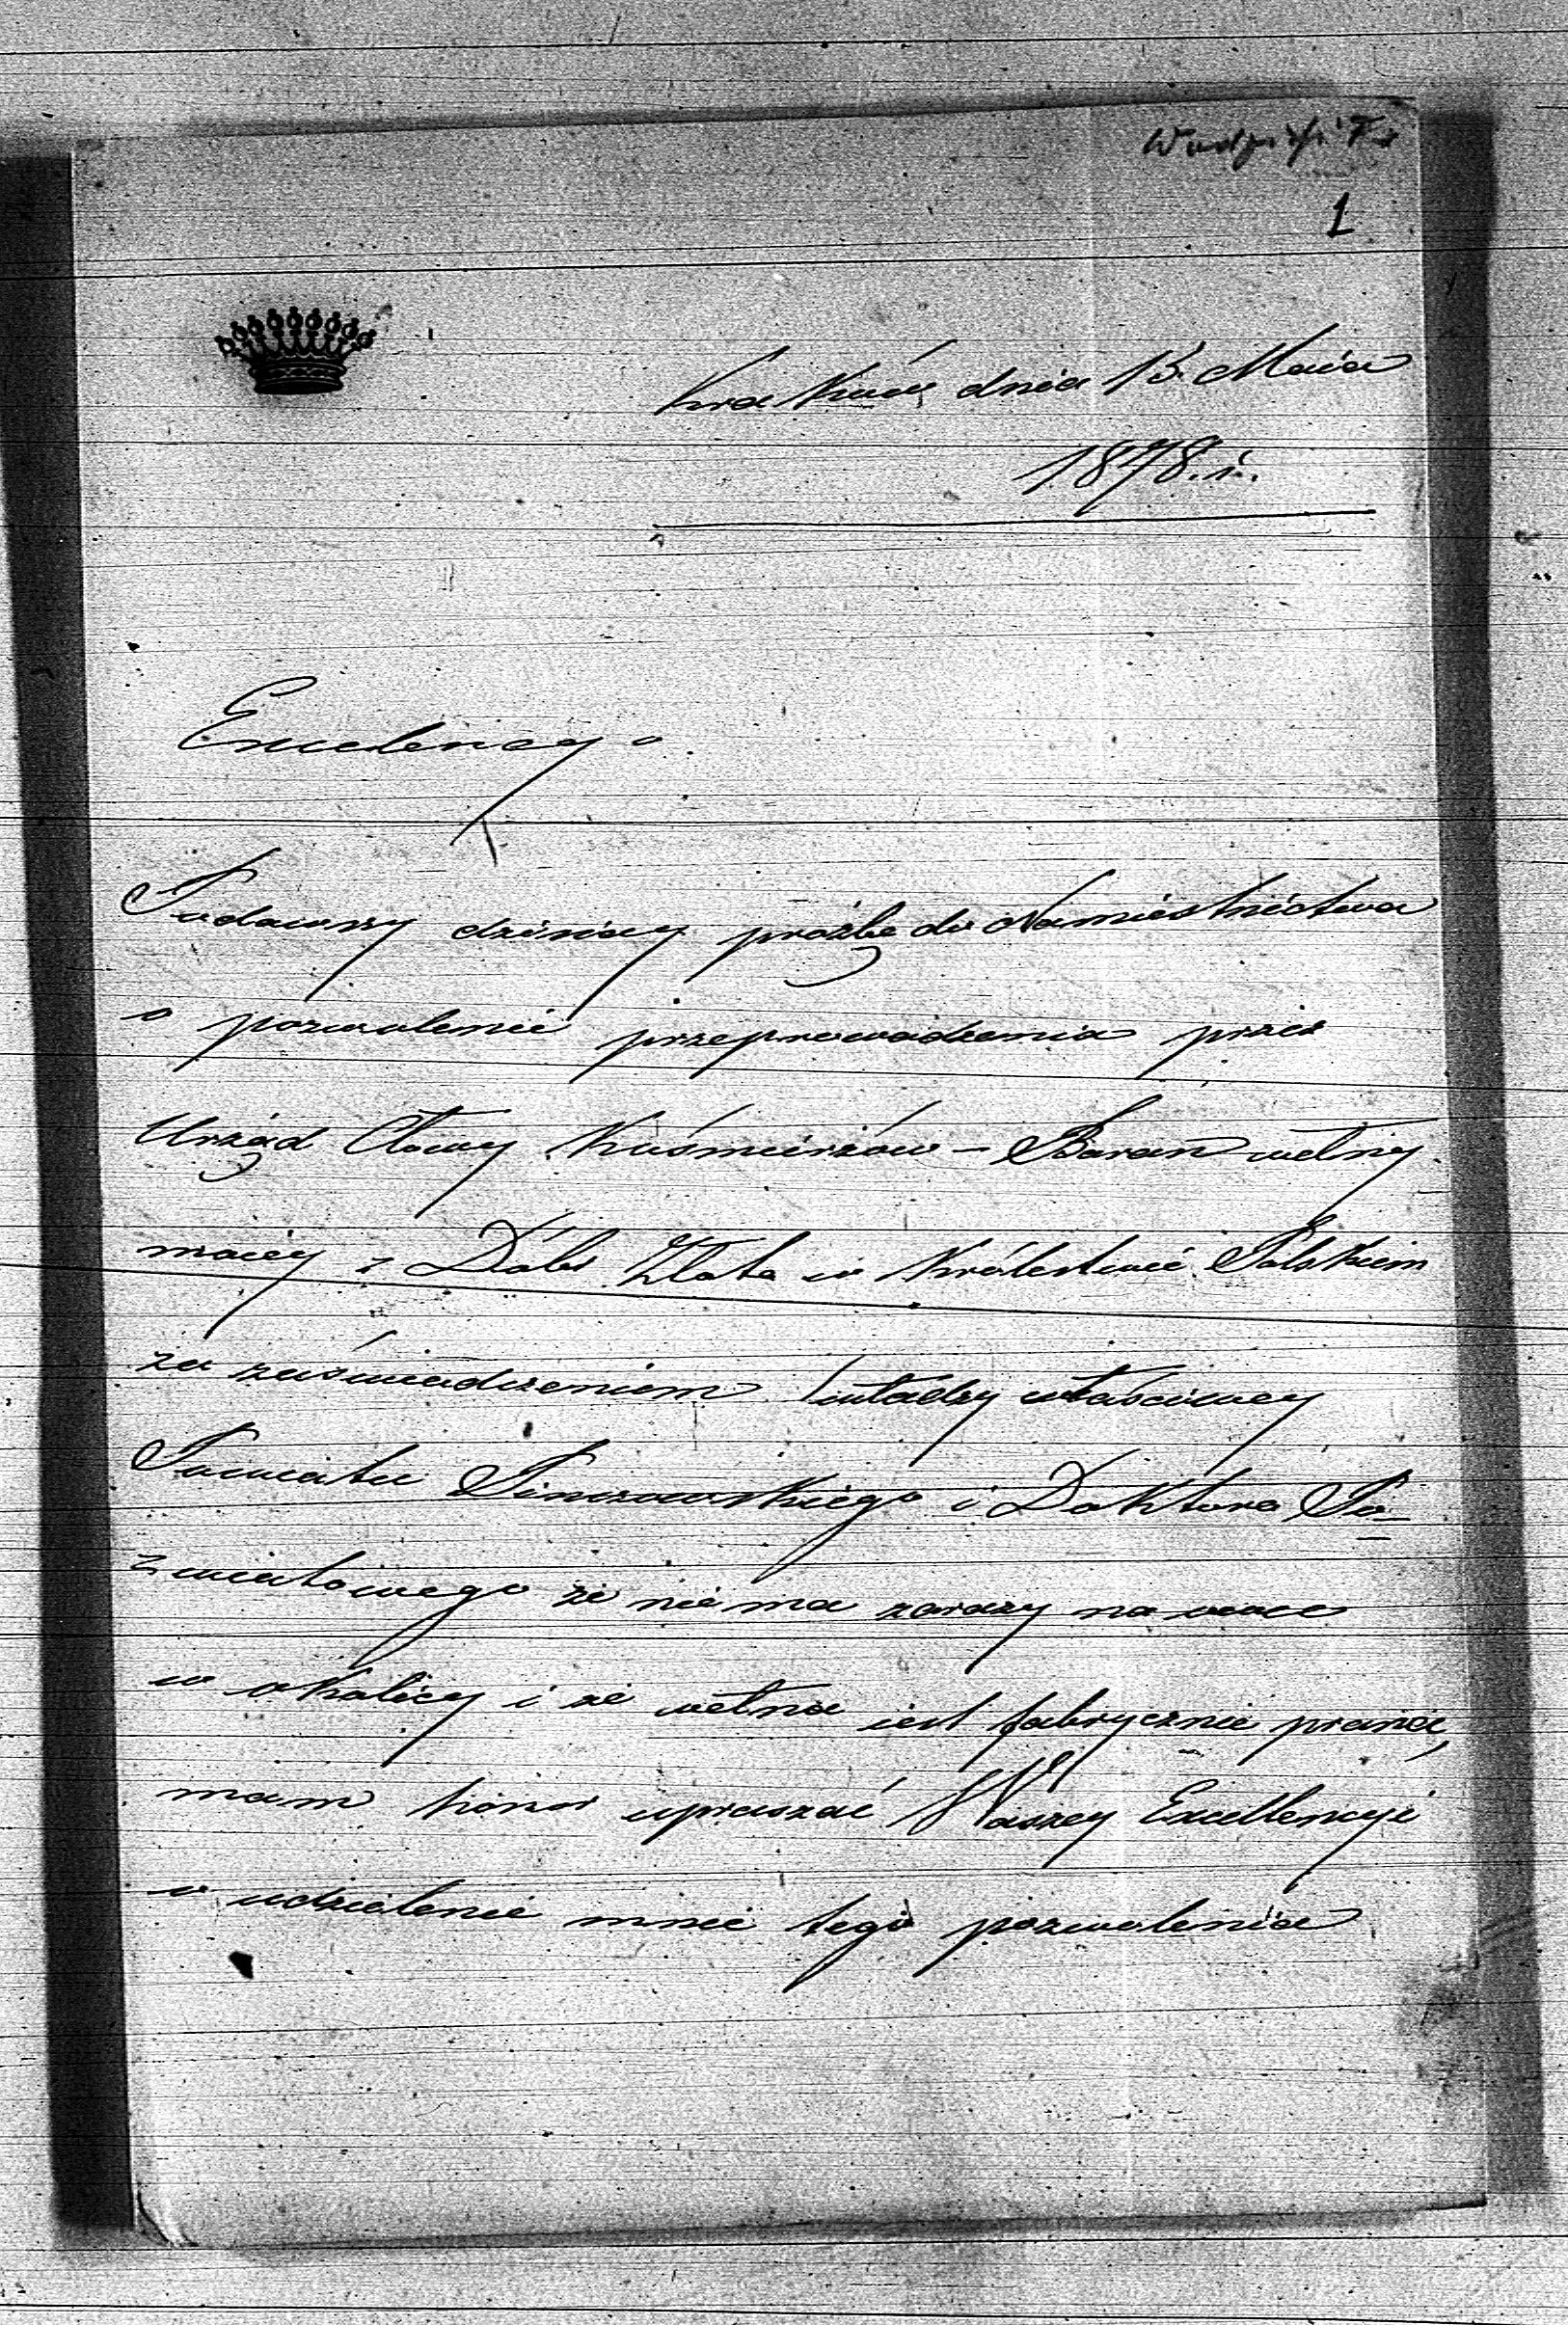 1
Kraków dnia 13. Maia
1878. r.
Excelencyo.
Podawszy dzisiay prożbę do Namiestnictwa
o pozwolenie przeprowadzenia przez
Urząd Cłowy Kuśmierżów – Baran wełny
moiey z Dóbr Złota w Królestwie Polskiem
za zaświadczeniem władzy właściwey
Powiatu Pinczowskiego i Doktora Po-
wiatowego że nie ma zarazy na owce
w okolicy i że wełna iest fabrycznie prana,
mam honor upraszać Waszey Excellencyi
o udzielenie mnie tego pozwolenia